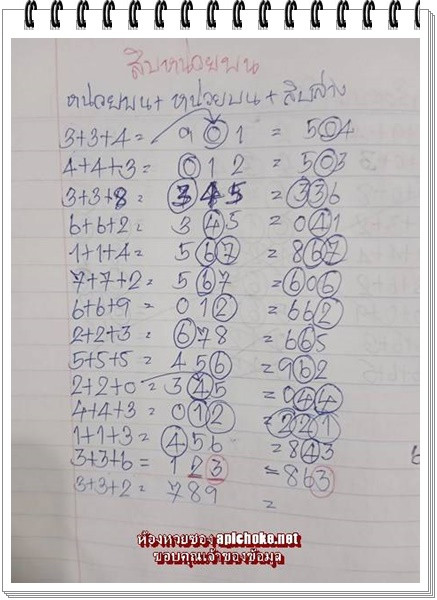 สิบหน่วยบน
หน่วยบน + หน่วยบน + สิบล่าง
3+3+4= 901 = 504
4+4+3= 012 = 503
3+3+8= 345 = 336
6+6+2= 345 = 041
1+1+4= 567 = 867
7+7+2= 567 = 606
6+6+9= 012 = 662
2+2+3= 678 = 665
5+5+5= 456 = 962
2+2+0= 345 = 044
4+4+3= 012 = 221
1+1+3= 456 = 843
3+3+6= 123 = 863
3+3+2= 789 =
ห้องหวยซอง apichoke.net
ขอบคุณเจ้าของข้อมูล